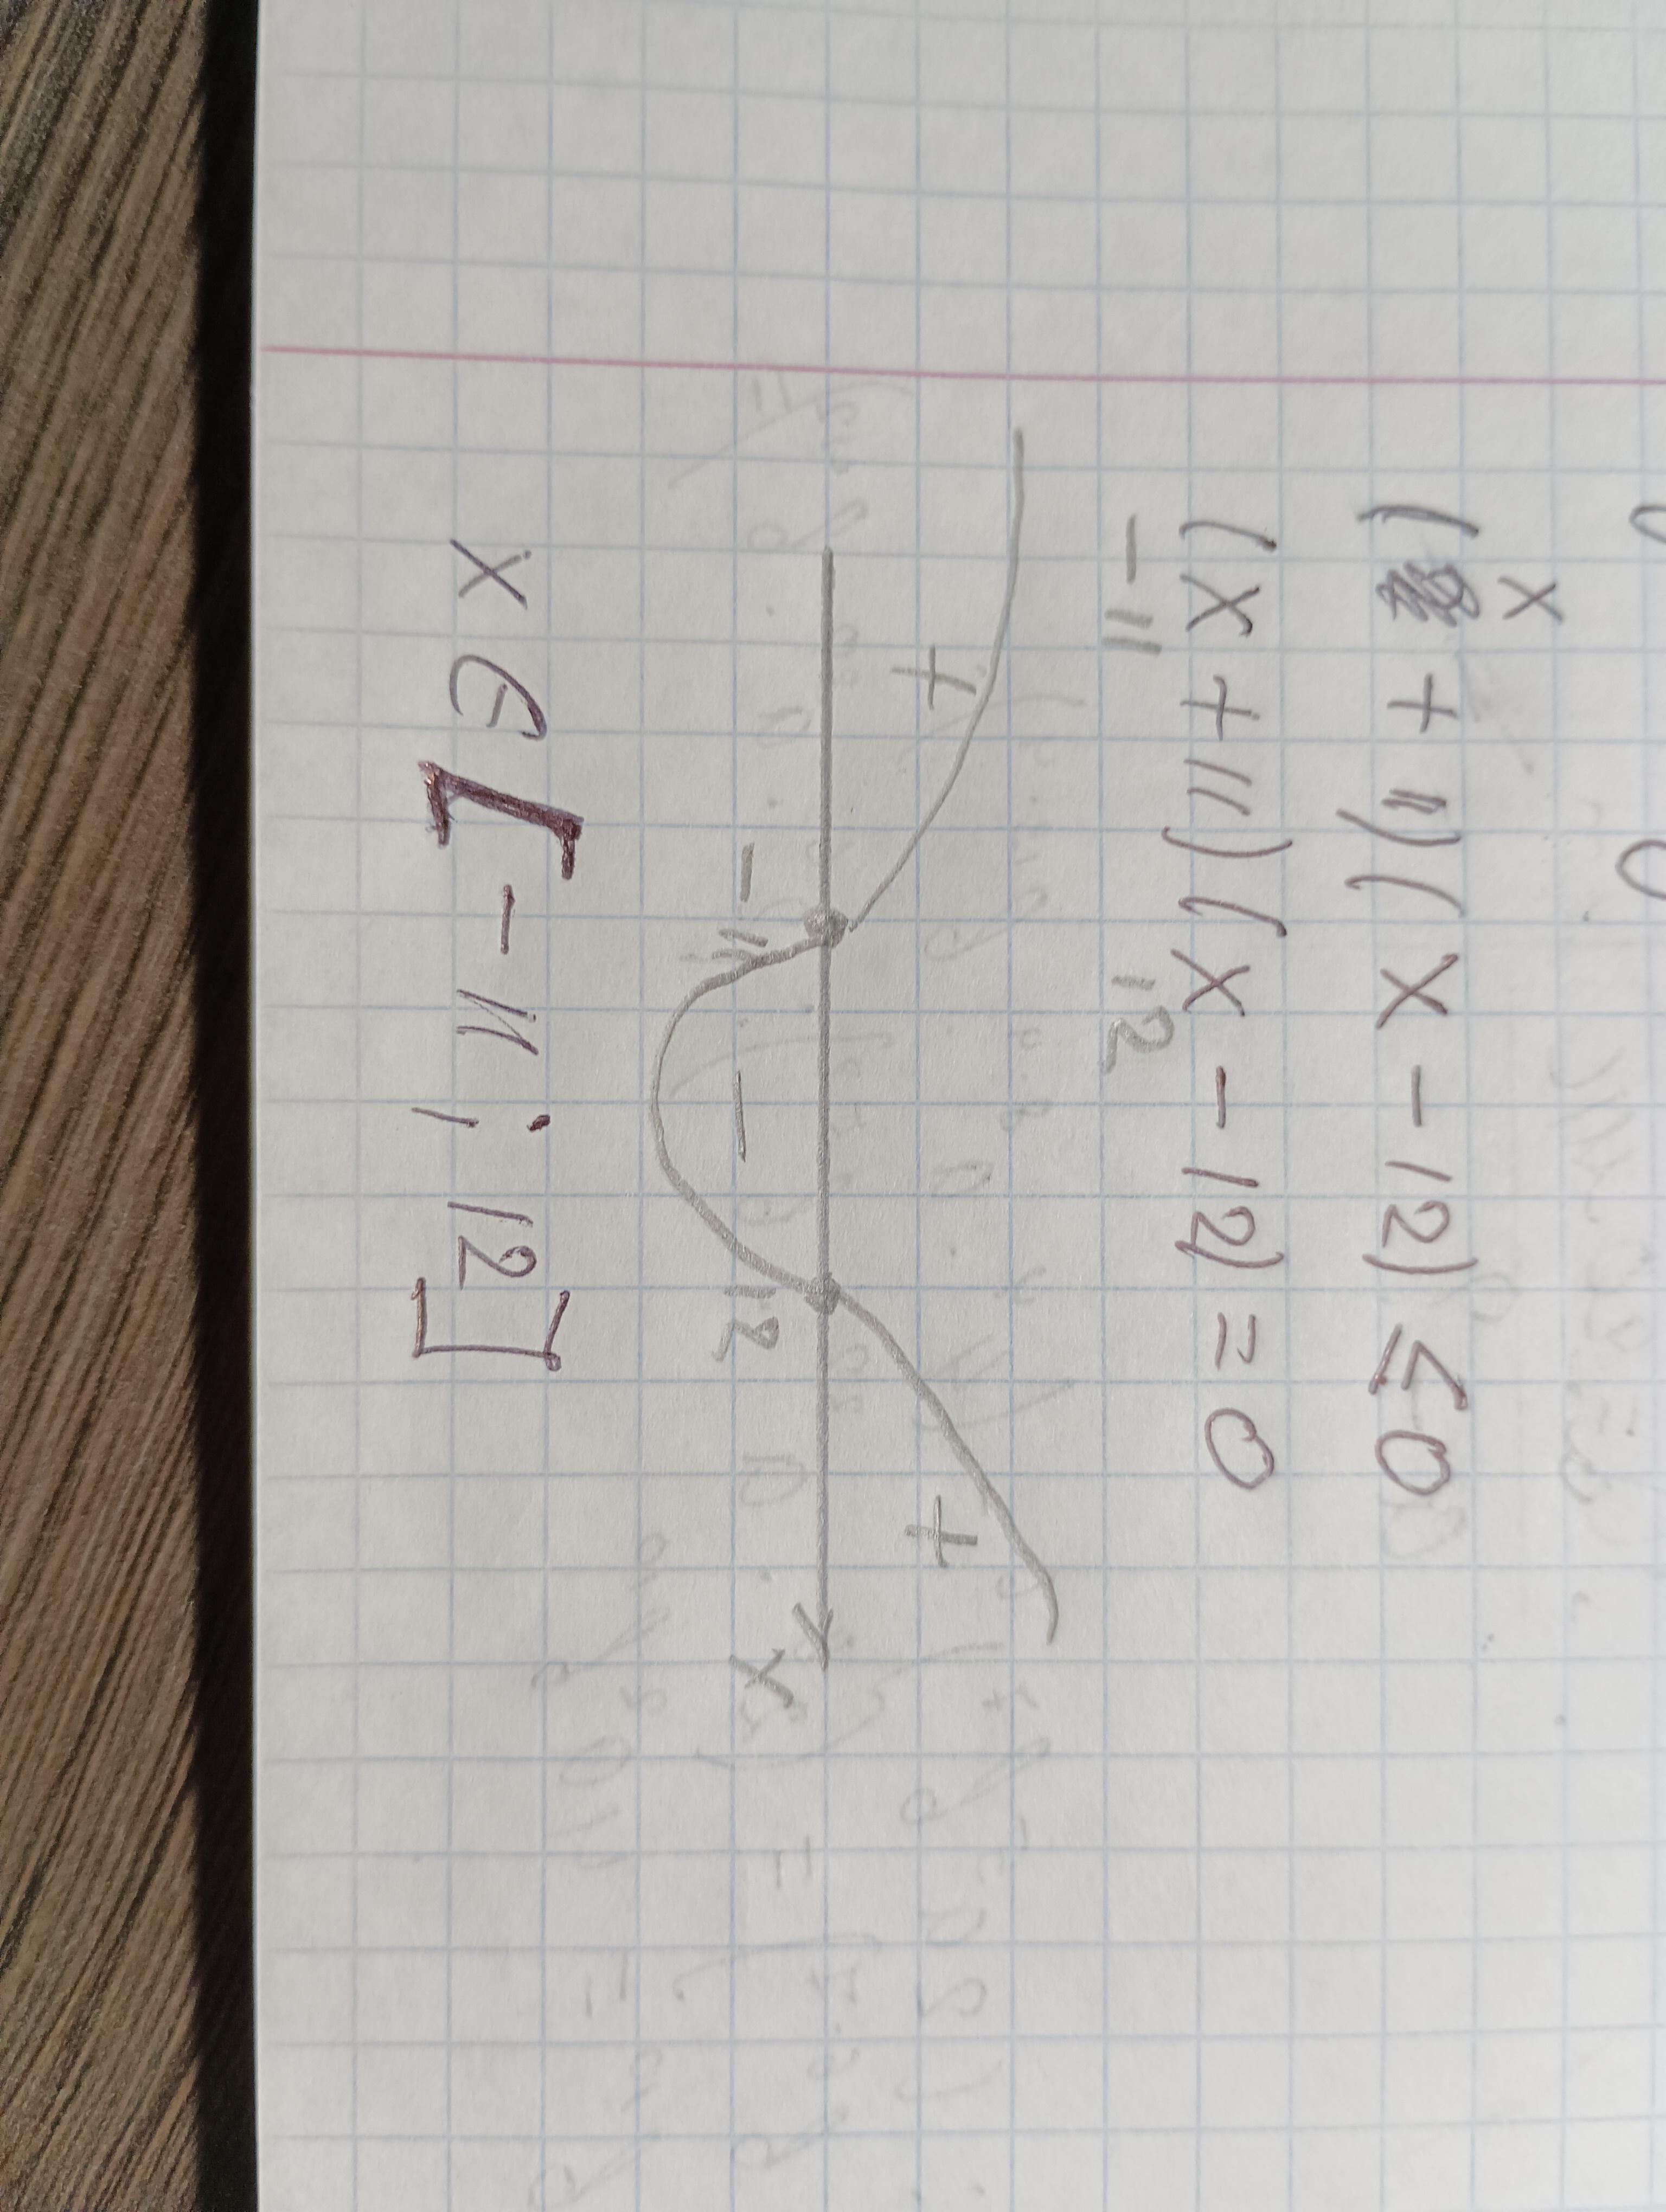 x
( + 11)(x - 12) ≤ 0
(x + 11)(x - 12) = 0
-11 12
+ - +
-11 12 x
x ∈ [-11; 12]